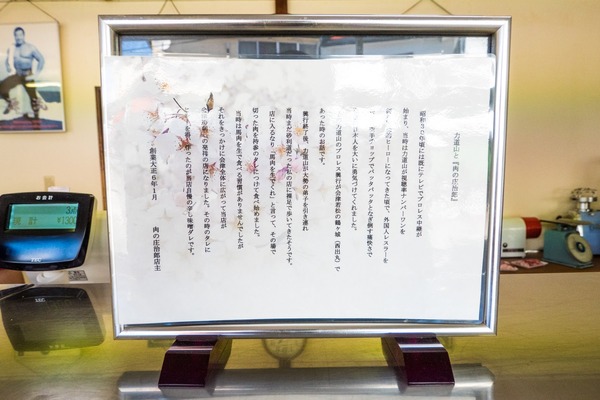 力道山と『肉の庄治郎』
昭和30年頃には既にテレビでプロレス中継が
始まり、当時は力道山が視聴率ナンバーワンを
ヒーローになってきた頃で、外国人レスラーを
空手チョップでバッタバッタとなぎ倒す痛快さで
日本人を大いに勇気づけてくれました。
力道山のプロレス興行が会津若松の鶴ヶ城(西出丸)で
あった時のお話です。
興行終了後、力道山が大勢の弟子を引き連れ
当時まだ砂利道だった私の店に裸足で歩いてきたそうです。
店に入るなり、「馬肉を生でくれ」と言って、その場で
切った肉を持参のタレにつけて食べ始めました。
当時は馬肉を生で食べる習慣がありませんでしたが
それをきっかけに会津全体に広がって当店が
発祥の店になりました。その時のタレに
当店自慢の辛し味噌ダレです。
創業大正6年1月
肉の庄治郎店主
お会計
¥1300
TEC